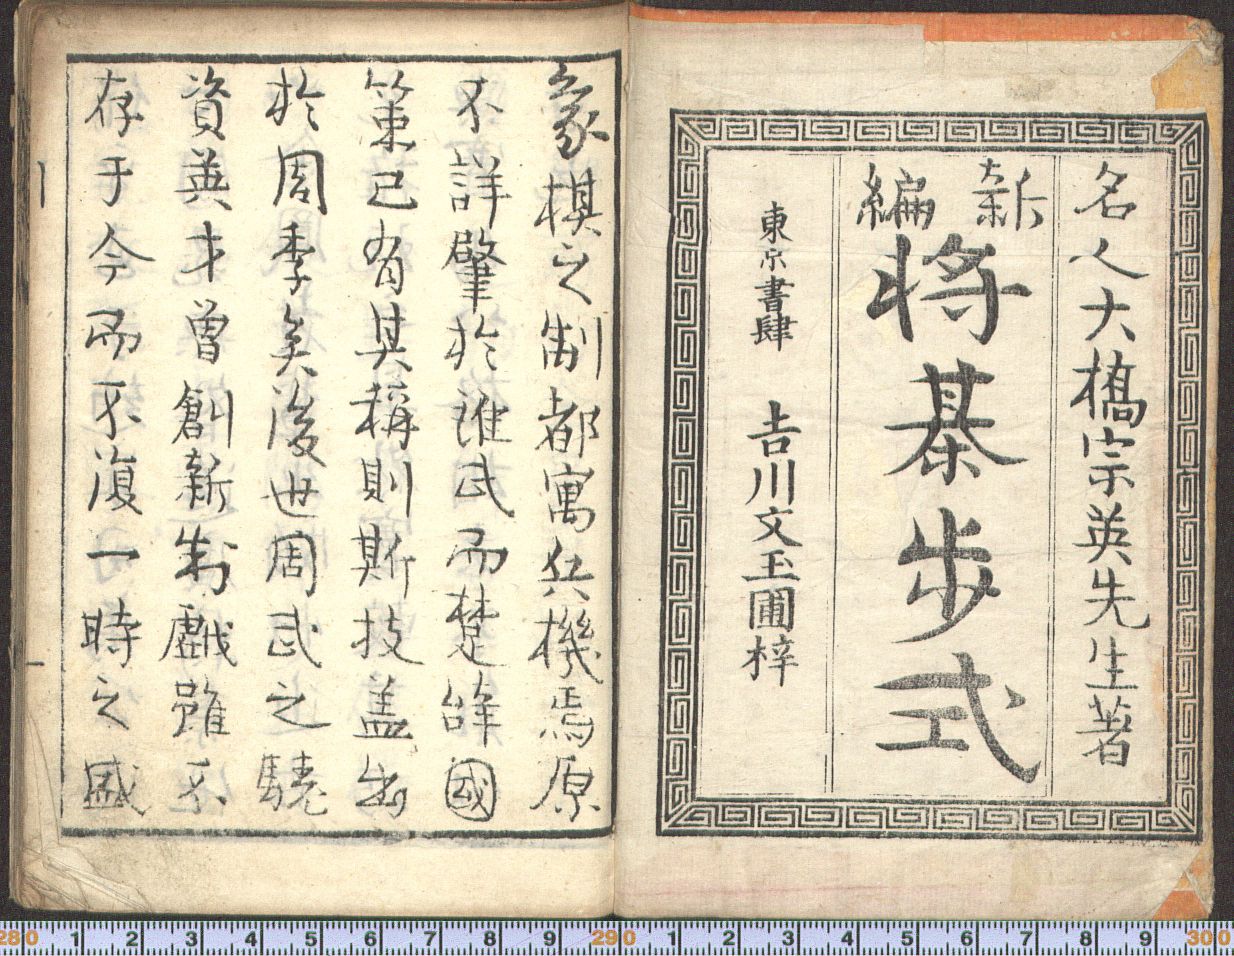 名人大橋宗英先生著
新編
将棊歩式
東京書肆 吉川文玉圃梓
象棋之制都寓兵機焉原
不詳肇於誰武而楚辞國
策已有其稱則斯技盖出
於周季矣後世周武之驍
資英才曽創新制戲雖不
存于今而不復一時之盛
280 1 2 3 4 5 6 7 8 9 290 1 2 3 4 5 6 7 8 9 300